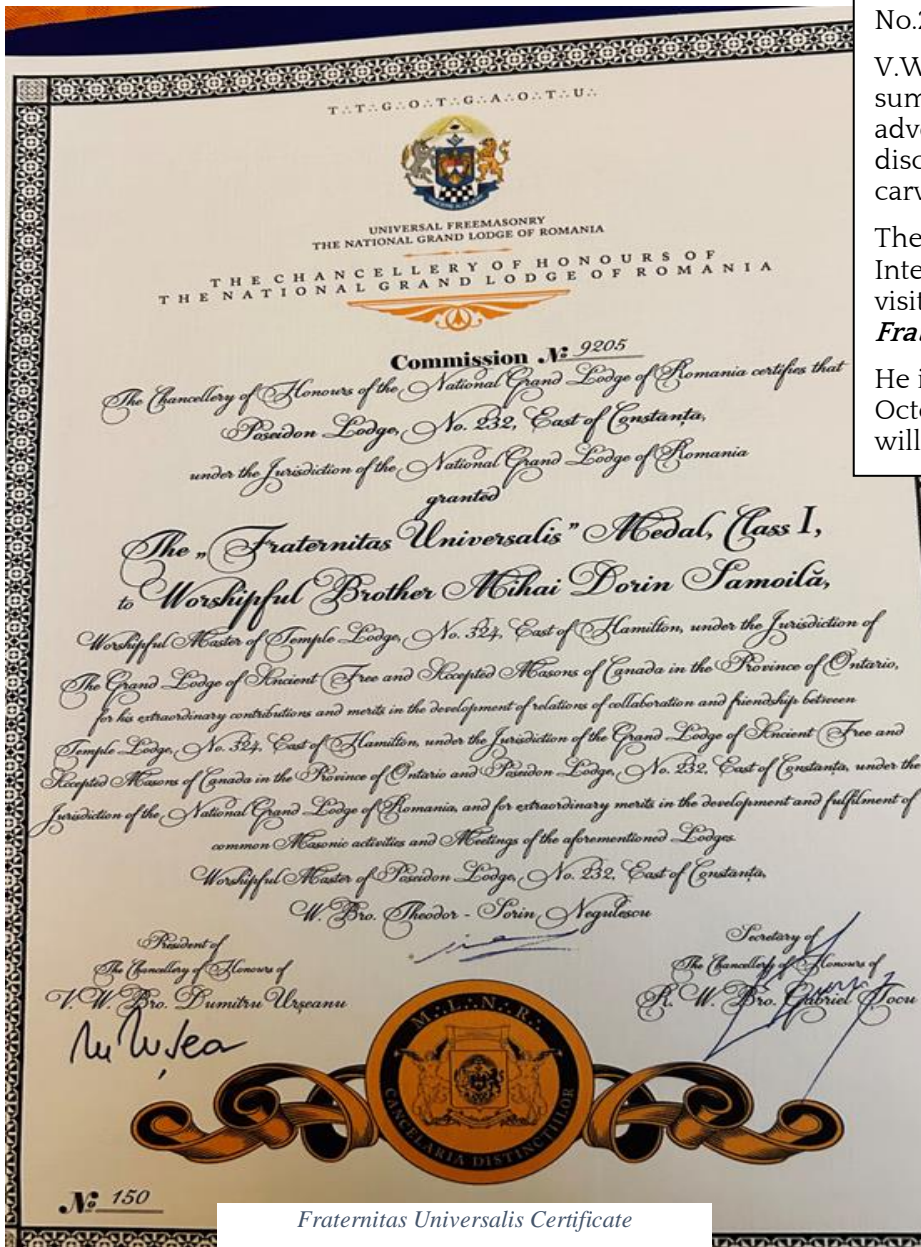 T∴T∴G∴O∴T∴G∴A∴O∴T∴U∴
UNIVERSAL FREEMASONRY
THE NATIONAL GRAND LODGE OF ROMANIA
THE CHANCELLERY OF HONOURS OF
THE NATIONAL GRAND LODGE OF ROMANIA
Commission № 9205
The Chancellery of Honours of the National Grand Lodge of Romania certifies that
Poseidon Lodge, No. 232, East of Constanța,
under the Jurisdiction of the National Grand Lodge of Romania
granted
The „Fraternitas Universalis” Medal, Class I,
to Worshipful Brother Mihai Dorin Samoilă,
Worshipful Master of Temple Lodge, No. 324, East of Hamilton, under the Jurisdiction of
The Grand Lodge of Ancient Free and Accepted Masons of Canada in the Province of Ontario,
for his extraordinary contributions and merits in the development of relations of collaboration and friendship between
Temple Lodge, No. 324, East of Hamilton, under the Jurisdiction of the Grand Lodge of Ancient Free and
Accepted Masons of Canada in the Province of Ontario and Poseidon Lodge, No. 232, East of Constanța, under the
Jurisdiction of the National Grand Lodge of Romania, and for extraordinary merits in the development and fulfilment of
common Masonic activities and Meetings of the aforementioned Lodges.
Worshipful Master of Poseidon Lodge, No. 232, East of Constanța,
W. Bro. Theodor - Sorin Negulescu
President of
The Chancellery of Honours of
V. W. Bro. Dumitru Urseanu
Secretary of
The Chancellery of Honours of
R. W. Bro. Gabriel Jocu
M∴L∴N∴R∴
CANCELARIA DISTINCȚIILOR
№ 150
Fraternitas Universalis Certificate
V.W
The
He i
will